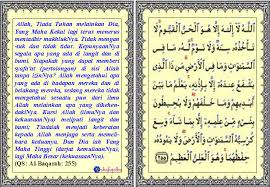 Allah, Tiada Tuhan melainkan Dia,
Yang Maha Kekal lagi terus menerus
mentadbir makhlukNya. Tidak mengan-
-tuk dan tidak tidur. KepunyaanNya
segala apa yang ada di langit dan di
bumi. Siapakah yang dapat memberi
syafa'at (pertolongan) di sisi Allah
tanpa izinNya? Allah mengetahui apa
yang ada di hadapan mereka dan di
belakang mereka, sedang mereka tidak
mengetahui sesuatu pun dari ilmu
Allah melainkan apa yang dikehen-
dakiNya. Kursi Allah (ilmuNya dan
kekuasaanNya) meliputi langit dan
bumi; Tiadalah menjadi keberatan
kepada Allah menjaga serta memeli-
hara keduanya. Dan Dia lah Yang
Maha Tinggi (darjat kemuliaanNya),
lagi Maha Besar (kekuasaanNya).
(QS: Al Baqarah: 255)
ٱللَّهُ لَآ إِلَٰهَ إِلَّا هُوَ ٱلْحَىُّ ٱلْقَيُّومُ لَا
تَأْخُذُهُۥ سِنَةٌ وَلَا نَوْمٌ لَّهُۥ مَا فِى
ٱلسَّمَٰوَٰتِ وَمَا فِى ٱلْأَرْضِ مَن ذَا ٱلَّذِى
يَشْفَعُ عِندَهُۥٓ إِلَّا بِإِذْنِهِۦ يَعْلَمُ مَا
بَيْنَ أَيْدِيهِمْ وَمَا خَلْفَهُمْ وَلَا يُحِيطُونَ
بِشَىْءٍ مِّنْ عِلْمِهِۦٓ إِلَّا بِمَا شَآءَ وَسِعَ
كُرْسِيُّهُ ٱلسَّمَٰوَٰتِ وَٱلْأَرْضَ وَلَا يَـُٔودُهُۥ
حِفْظُهُمَا وَهُوَ ٱلْعَلِىُّ ٱلْعَظِيمُ ٢٥٥